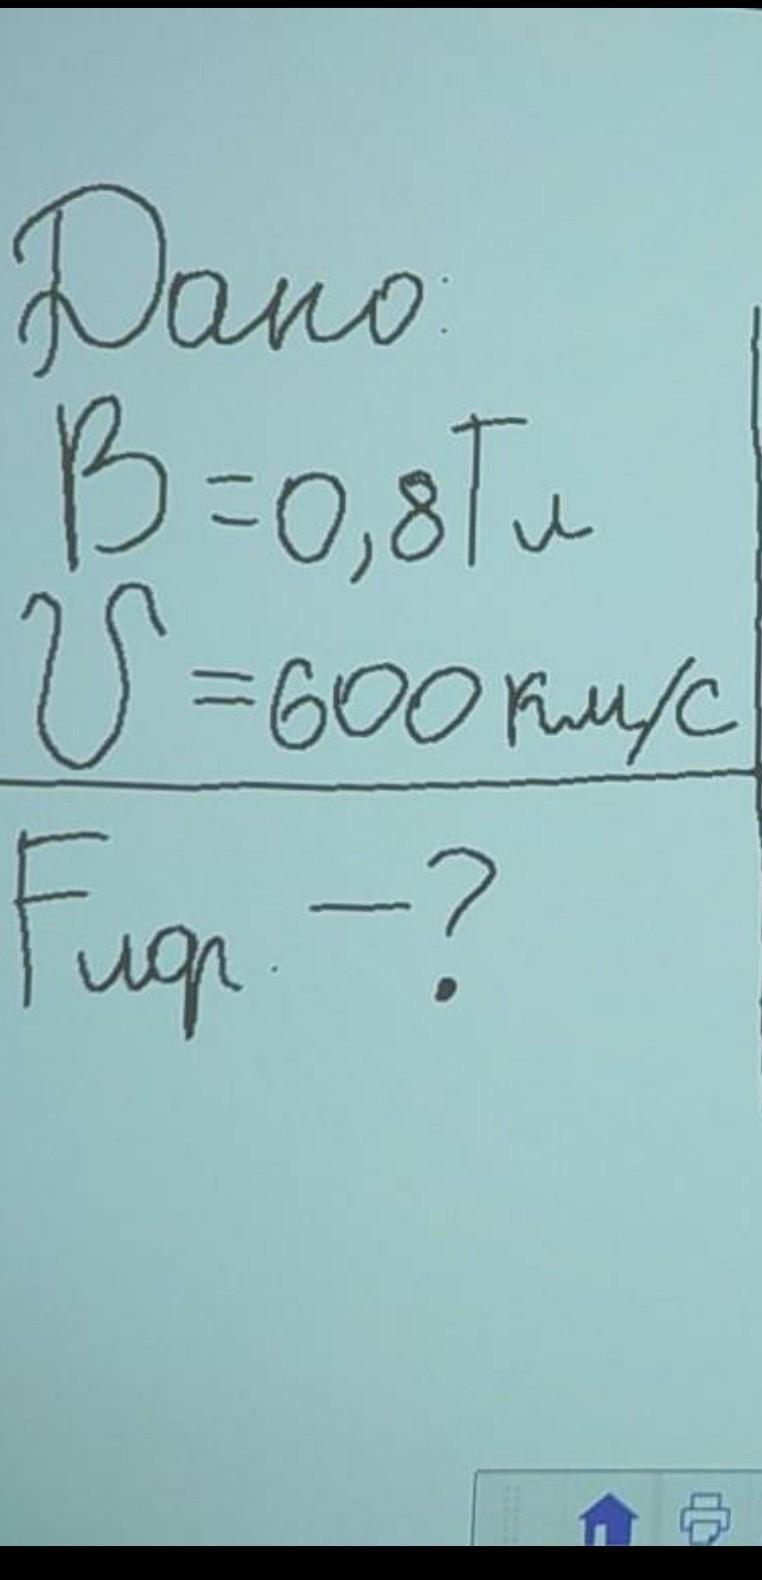 Дано:
B=0,8Тл
υ=600км/с
Fидр. -?